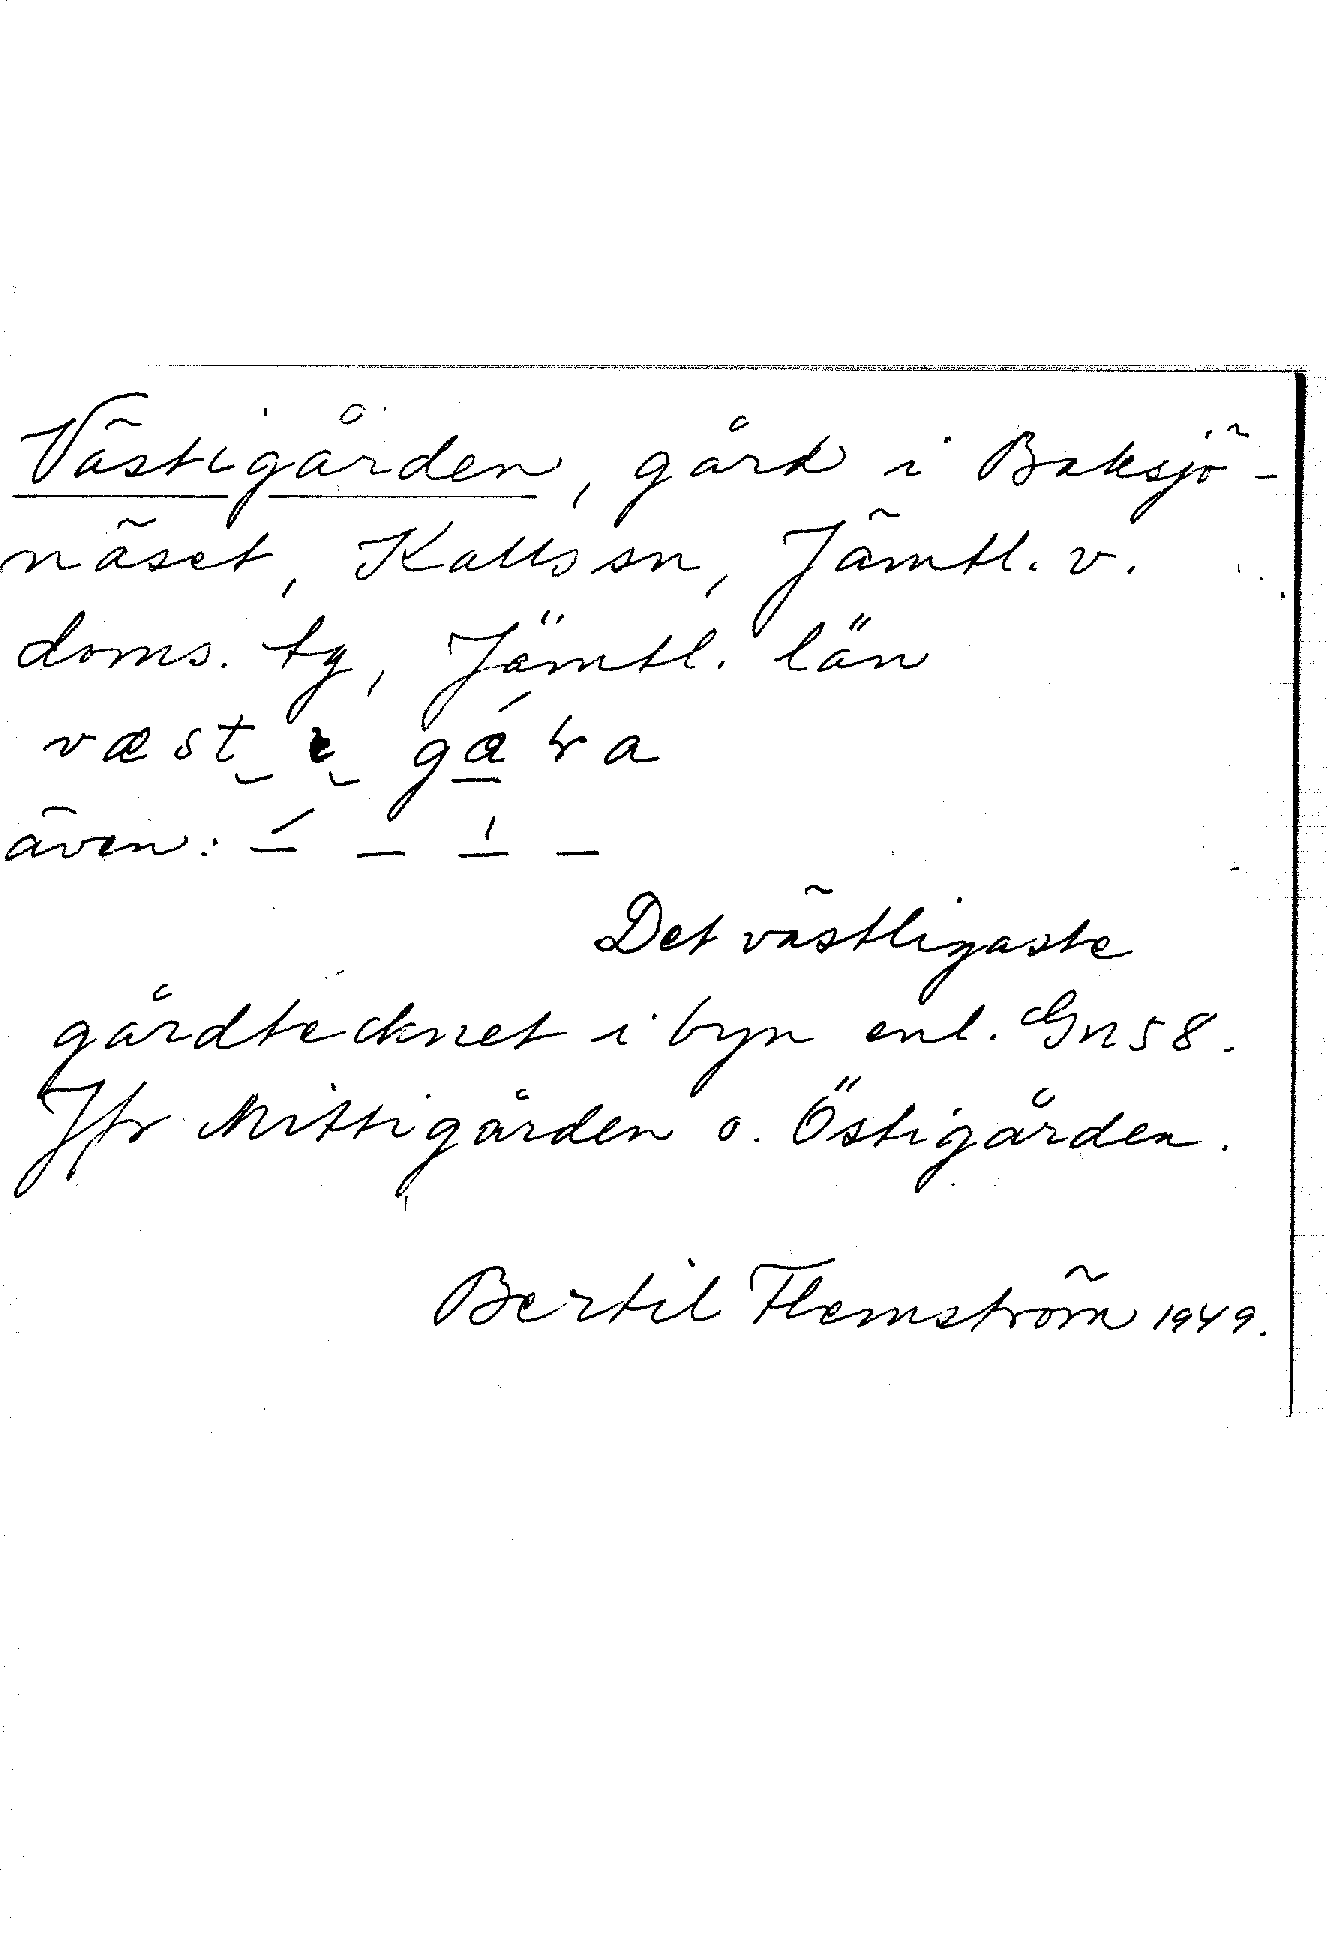 Västigården, gård i Baksjö-
näset, Kallssn, Jämtl. v.
doms. tg, Jämtl. län
væst
även: – – – –
Det västligaste
gårdtecknet i byn enl. Gn 58.
Jfr Mittigården o. Östigården.
Bertil Flemström 1949.